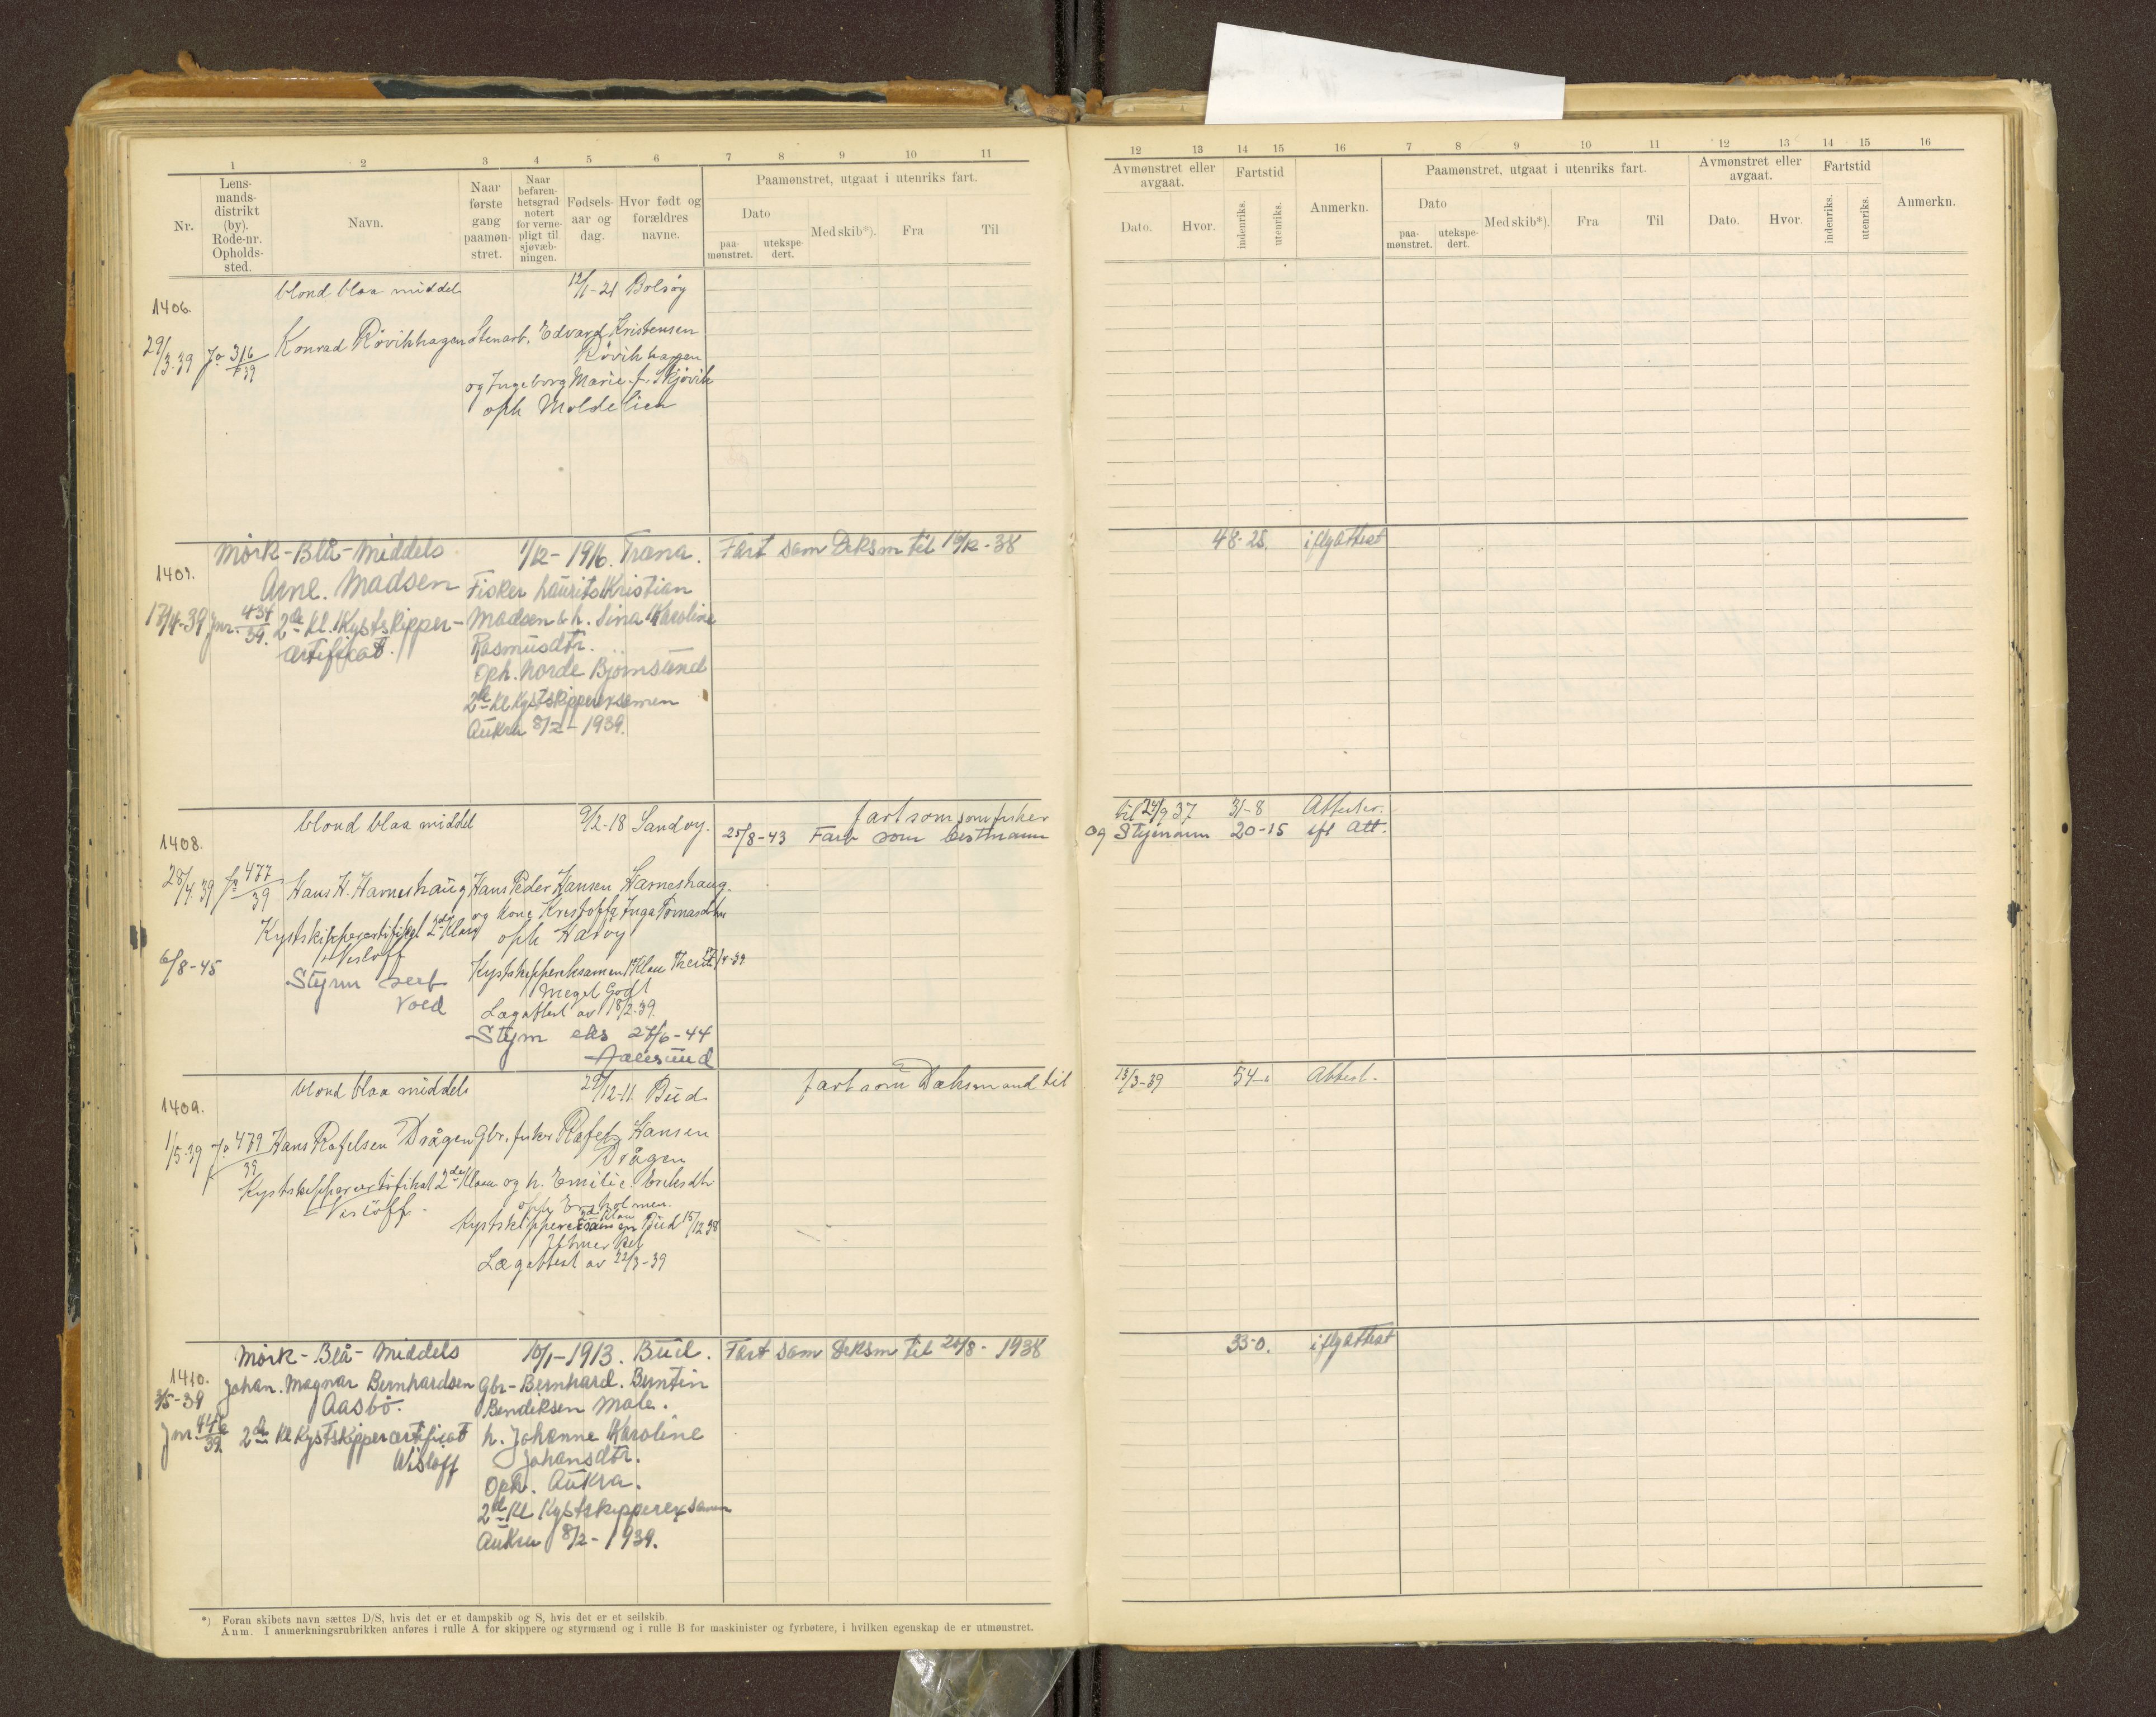 1 2 3 4 5 6 7 8 9 10 11
Nr.
Lens-
mands-
distrikt
(by).
Rode-nr.
Opholds-
sted.
Navn.
Naar
første
gang
paamøn-
stret.
Naar
befaren-
hetsgrad
notert
for verne-
pligt til
sjøvæb-
ningen.
Fødsels-
aar og
dag.
Hvor født og
forældres
navne.
Paamønstret, utgaat i utenriks fart.
Dato
paa-
mønstret.
utekspe-
dert.
Med skib*).
Fra
Til
12 13 14 15 16 7 8 9 10 11 12 13 14 15 16
Avmønstret eller
avgaat.
Dato.
Hvor.
Fartstid
indenriks.
utenriks.
Anmerkn.
Paamønstret, utgaat i utenriks fart.
Dato
paa-
mønstret.
utekspe-
dert.
Med skib*).
Fra
Til
Avmønstret eller
avgaat.
Dato.
Hvor.
Fartstid
indenriks.
utenriks.
Anmerkn.
1406.
blond blaa middels
12/1-21 Bolsøy
29/3.39 Jo 316/39
Konrad Røvikhagen Stenarb. Edvard Kristensen
Røvikhagen
og Ingeborg Marie f. Skjøvik
oph Moldelien
Mørk-Blå-Middels 1/12-1916. Træna. Fart som Deksm til 16/12-38 48-28. iflg Attest
1407.
Arne. Madsen Fisker Laurits Kristian
17/4-39 Jnr. 434/39. 2de Kl. Kystskipper- Madsen & h. Sina Karoline
certificat. Rasmusdtr.
Oph. Nordre Bjørnsund
2de Kl Kystskippereksamen
Aukra 8/2-1939.
blond blaa middel 9/2-18 Sandøy. fart som som fisker til 24/9 37 31-8 Attester.
1408.
25/8-43 Fart som bestmann og Styrmann 20-15 ifl Att.
28/4.39 Jo 477/39 Hans H. Harneshaug Hans Peder Hansen Harneshaug.
og kone Kristoffa Inga Tomasdtr
Kystskippercertifikat 2de Klasse oph Harøy
Visløff
6/8-45
Kystskippereksamen 1 Klasse 17/4-39
Styrm sert Meget Godt
voed Lægattest av 18/2.39.
Styrm eks 27/6-44
Aalesund
blond blaa middels 29/12-11. Bud fart som Dæksmand til 13/3-39 54- Attest.
1409.
1/5.39 Jo 479/39 Hans Rafelsen Drågen Gbr. fisker Rafel Hansen
Drågen
Kystskippercertifikat 2de Klasse og h. Emilie Eriksdtr
Visløff.
Kystskippereksamen Bud 15/12 38
Lægattest av 22/3-39
Mørk-Blå-Middels 16/1-1913. Bud. Fart som Deksm til 20/8-1938 33-0. iflg Attest
1410.
Johan. Magnar Bernhardsen Gbr-Bernhard. Berntin
3/5-39 Aasbø. Bendiksen Male.
Jnr. 446/39. 2de Kl Kystskippercertificat h. Johanne Karoline
Wisløff Johansdtr.
Oph. Aukra.
2de Kl Kystskippereksamen
Aukra 8/2-1939.
*) Foran skibets navn sættes D/S, hvis det er et dampskib og S, hvis det er et seilskib.
Anm. I anmerkningsrubrikken anføres i rulle A for skippere og styrmænd og i rulle B for maskinister og fyrbøtere, i hvilken egenskap de er utmønstret.